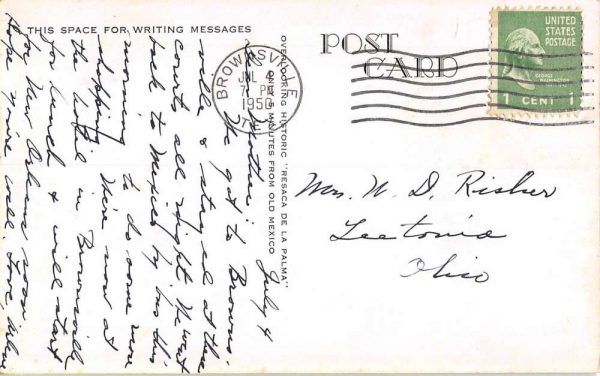 THIS SPACE FOR WRITING MESSAGES
July 4
Mother:-
We got to Browns-
ville & stayed at these
courts all night. We went
back to Mexico by bus this
morning to do some more
shopping. We're now at
the hotel in Brownsville
for lunch & will start
for New Orleans soon.
Hope you're well. Love,
OVERLOOKING HISTORIC "RESACA DE LA PALMA"
MINUTES FROM OLD MEXICO
BROWNSVILLE
JUL 4
7 PM
1950
TEX.
POST
CARD
UNITED
STATES
POSTAGE
GEORGE
WASHINGTON
1 CENT 1
Mrs. W. D. Risher
Leetonia
Ohio